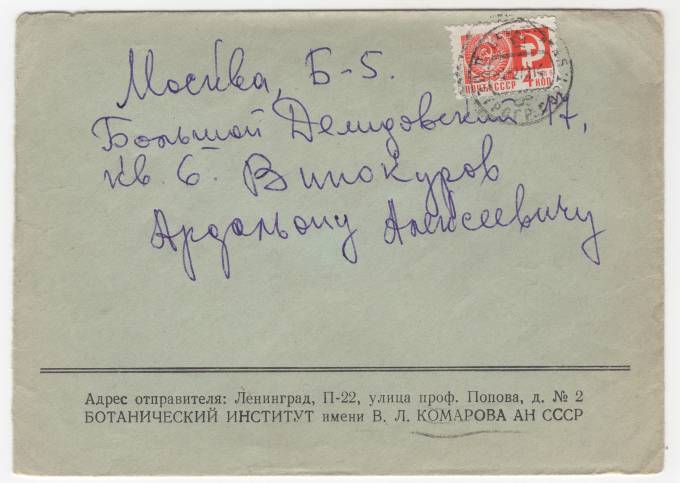 Москва, Б-5.
Большой Демидовский 17,
кв. 6. Винокуров
Ардальону Алексеевичу
ПОЧТА СССР 4 КОП
Адрес отправителя: Ленинград, П-22, улица проф. Попова, д. № 2
БОТАНИЧЕСКИЙ ИНСТИТУТ имени В. Л. КОМАРОВА АН СССР